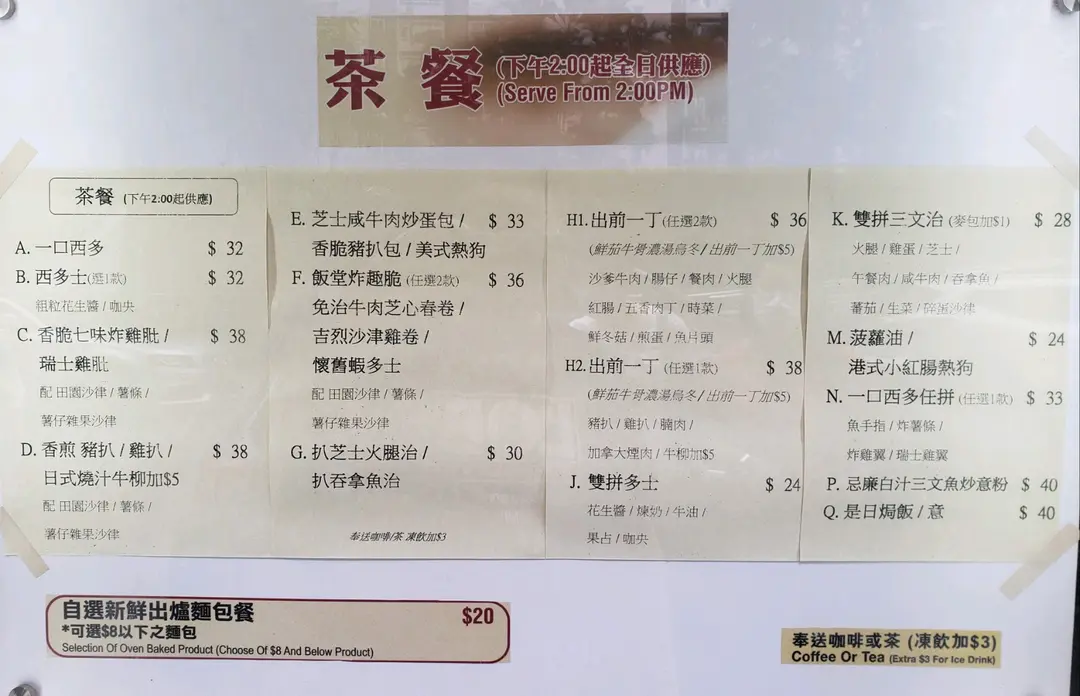 茶 餐 (下午2:00起全日供應)
(Serve From 2:00PM)
茶餐 (下午2:00起供應)
A. 一口西多 $ 32
B. 西多士(選1款) $ 32
粗粒花生醬 / 咖央
C. 香脆七味炸雞肶 / $ 38
瑞士雞肶
配 田園沙律 / 薯條 /
薯仔雜果沙律
D. 香煎 豬扒 / 雞扒 / $ 38
日式燒汁牛柳加$5
配 田園沙律 / 薯條 /
薯仔雜果沙律
E. 芝士咸牛肉炒蛋包 / $ 33
香脆豬扒包 / 美式熱狗
F. 飯堂炸趣脆 (任選2款) $ 36
免治牛肉芝心春卷 /
吉烈沙津雞卷 /
懷舊蝦多士
配 田園沙律 / 薯條 /
薯仔雜果沙律
G. 扒芝士火腿治 / $ 30
扒吞拿魚治
奉送咖啡/茶 凍飲加$3
H1. 出前一丁(任選2款) $ 36
(鮮茄牛骨濃湯烏冬/ 出前一丁加$5)
沙爹牛肉 / 腸仔 / 餐肉 / 火腿
紅腸 / 五香肉丁 / 時菜 /
鮮冬菇 / 煎蛋 / 魚片頭
H2. 出前一丁 (任選1款) $ 38
(鮮茄牛骨濃湯烏冬/ 出前一丁加$5)
豬扒 / 雞扒 / 腩肉 /
加拿大煙肉 / 牛柳加$5
J. 雙拼多士 $ 24
花生醬 / 煉奶 / 牛油 /
果占 / 咖央
K. 雙拼三文治 (麥包加$1) $ 28
火腿 / 雞蛋 / 芝士 /
午餐肉 / 咸牛肉 / 吞拿魚 /
蕃茄 / 生菜 / 碎蛋沙律
M. 菠蘿油 / $ 24
港式小紅腸熱狗
N. 一口西多任拼 (任選1款) $ 33
魚手指 / 炸薯條 /
炸雞翼 / 瑞士雞翼
P. 忌廉白汁三文魚炒意粉 $ 40
Q. 是日焗飯 / 意 $ 40
自選新鮮出爐麵包餐 $20
*可選$8以下之麵包
Selection Of Oven Baked Product (Choose Of $8 And Below Product)
奉送咖啡或茶 (凍飲加$3)
Coffee Or Tea (Extra $3 For Ice Drink)